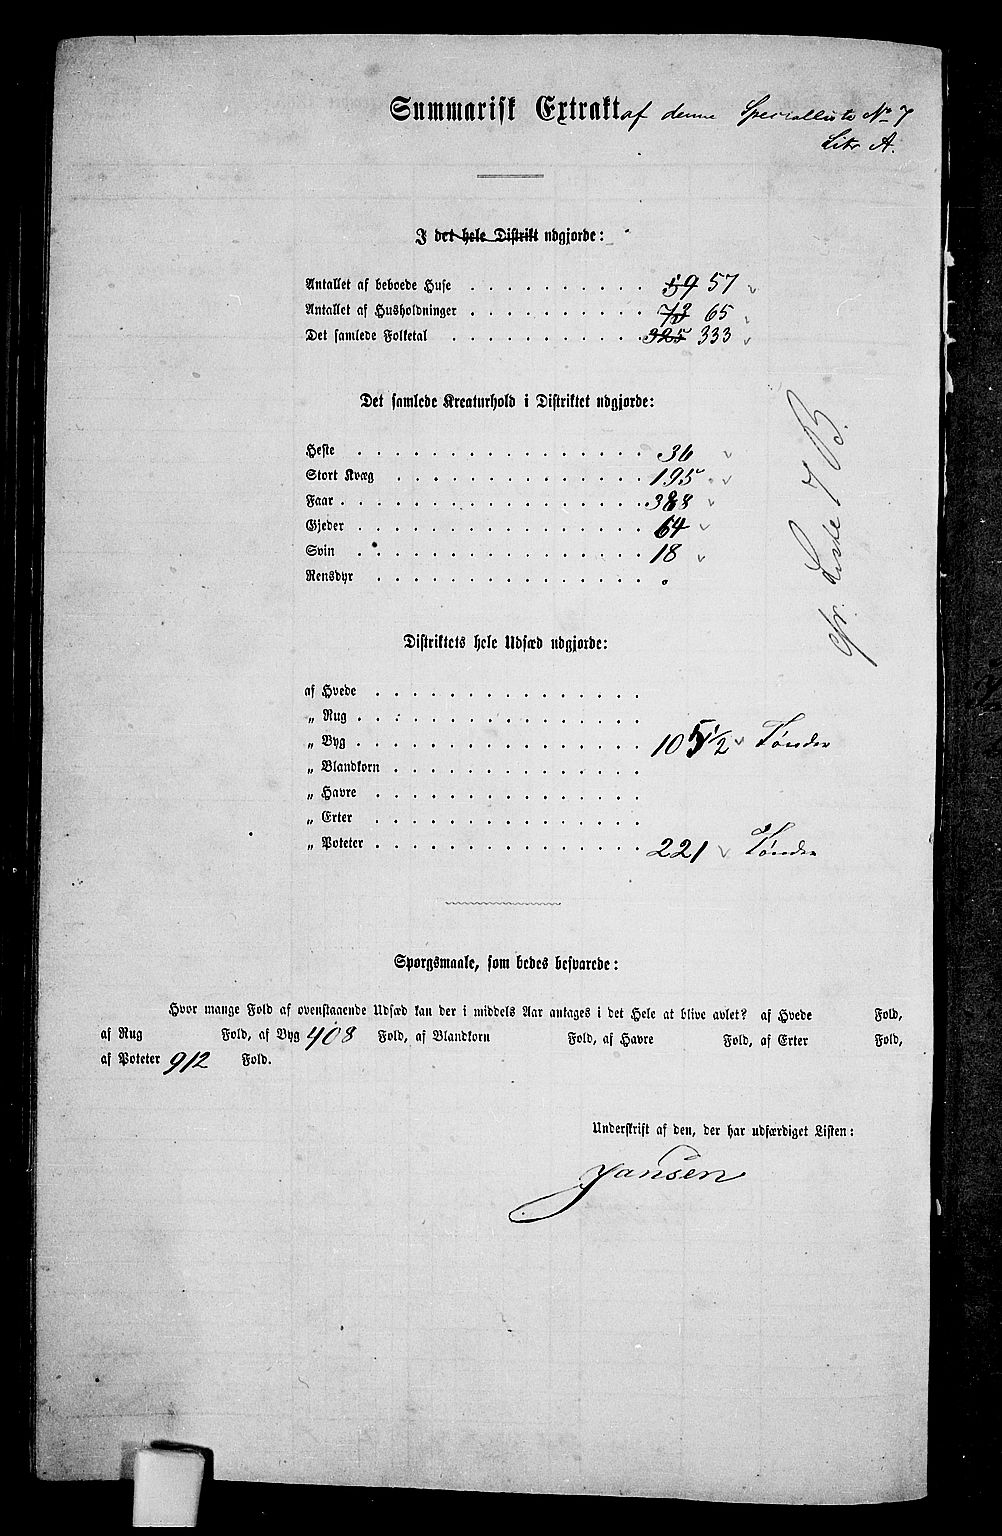 Summarisk Extrakt af denne Specialliste No 7
Litr A.
I det hele Distrikt udgjorde:
Antallet af beboede Huse . . . . . . . . . . 59 57
Antallet af Husholdninger . . . . . . . . . . 73 65
Det samlede Folketal . . . . . . . . . . . 325 333
Det samlede Kreaturhold i Distriktet udgjorde:
Heste . . . . . . . . . . . . . . . . 36
Stort Kvæg . . . . . . . . . . . . . . 195
Faar . . . . . . . . . . . . . . . . . 388
Gjeder . . . . . . . . . . . . . . . . 64
Svin . . . . . . . . . . . . . . . . 18
Rensdyr . . . . . . . . . . . . . . .
cfr. Liste 7 B.
Distriktets hele Udsæd udgjorde:
af Hvede . . . . . . . . . . . . . . .
„ Rug . . . . . . . . . . . . . . . .
„ Byg . . . . . . . . . . . . . . . . 105 1/2 Tønder
„ Blandkorn . . . . . . . . . . . . . .
„ Havre . . . . . . . . . . . . . . .
„ Erter . . . . . . . . . . . . . . .
„ Poteter . . . . . . . . . . . . . . . 221 Tønder
Spørgsmaale, som bedes besvarede:
Hvor mange Fold af ovenstaaende Udsæd kan der i middels Aar antages i det Hele at blive avlet? af Hvede Fold,
af Rug Fold, af Byg 408 Fold, af Blandkorn Fold, af Havre Fold, af Erter Fold,
af Poteter 912 Fold.
Underskrift af den, der har udfærdiget Listen:
Jansen